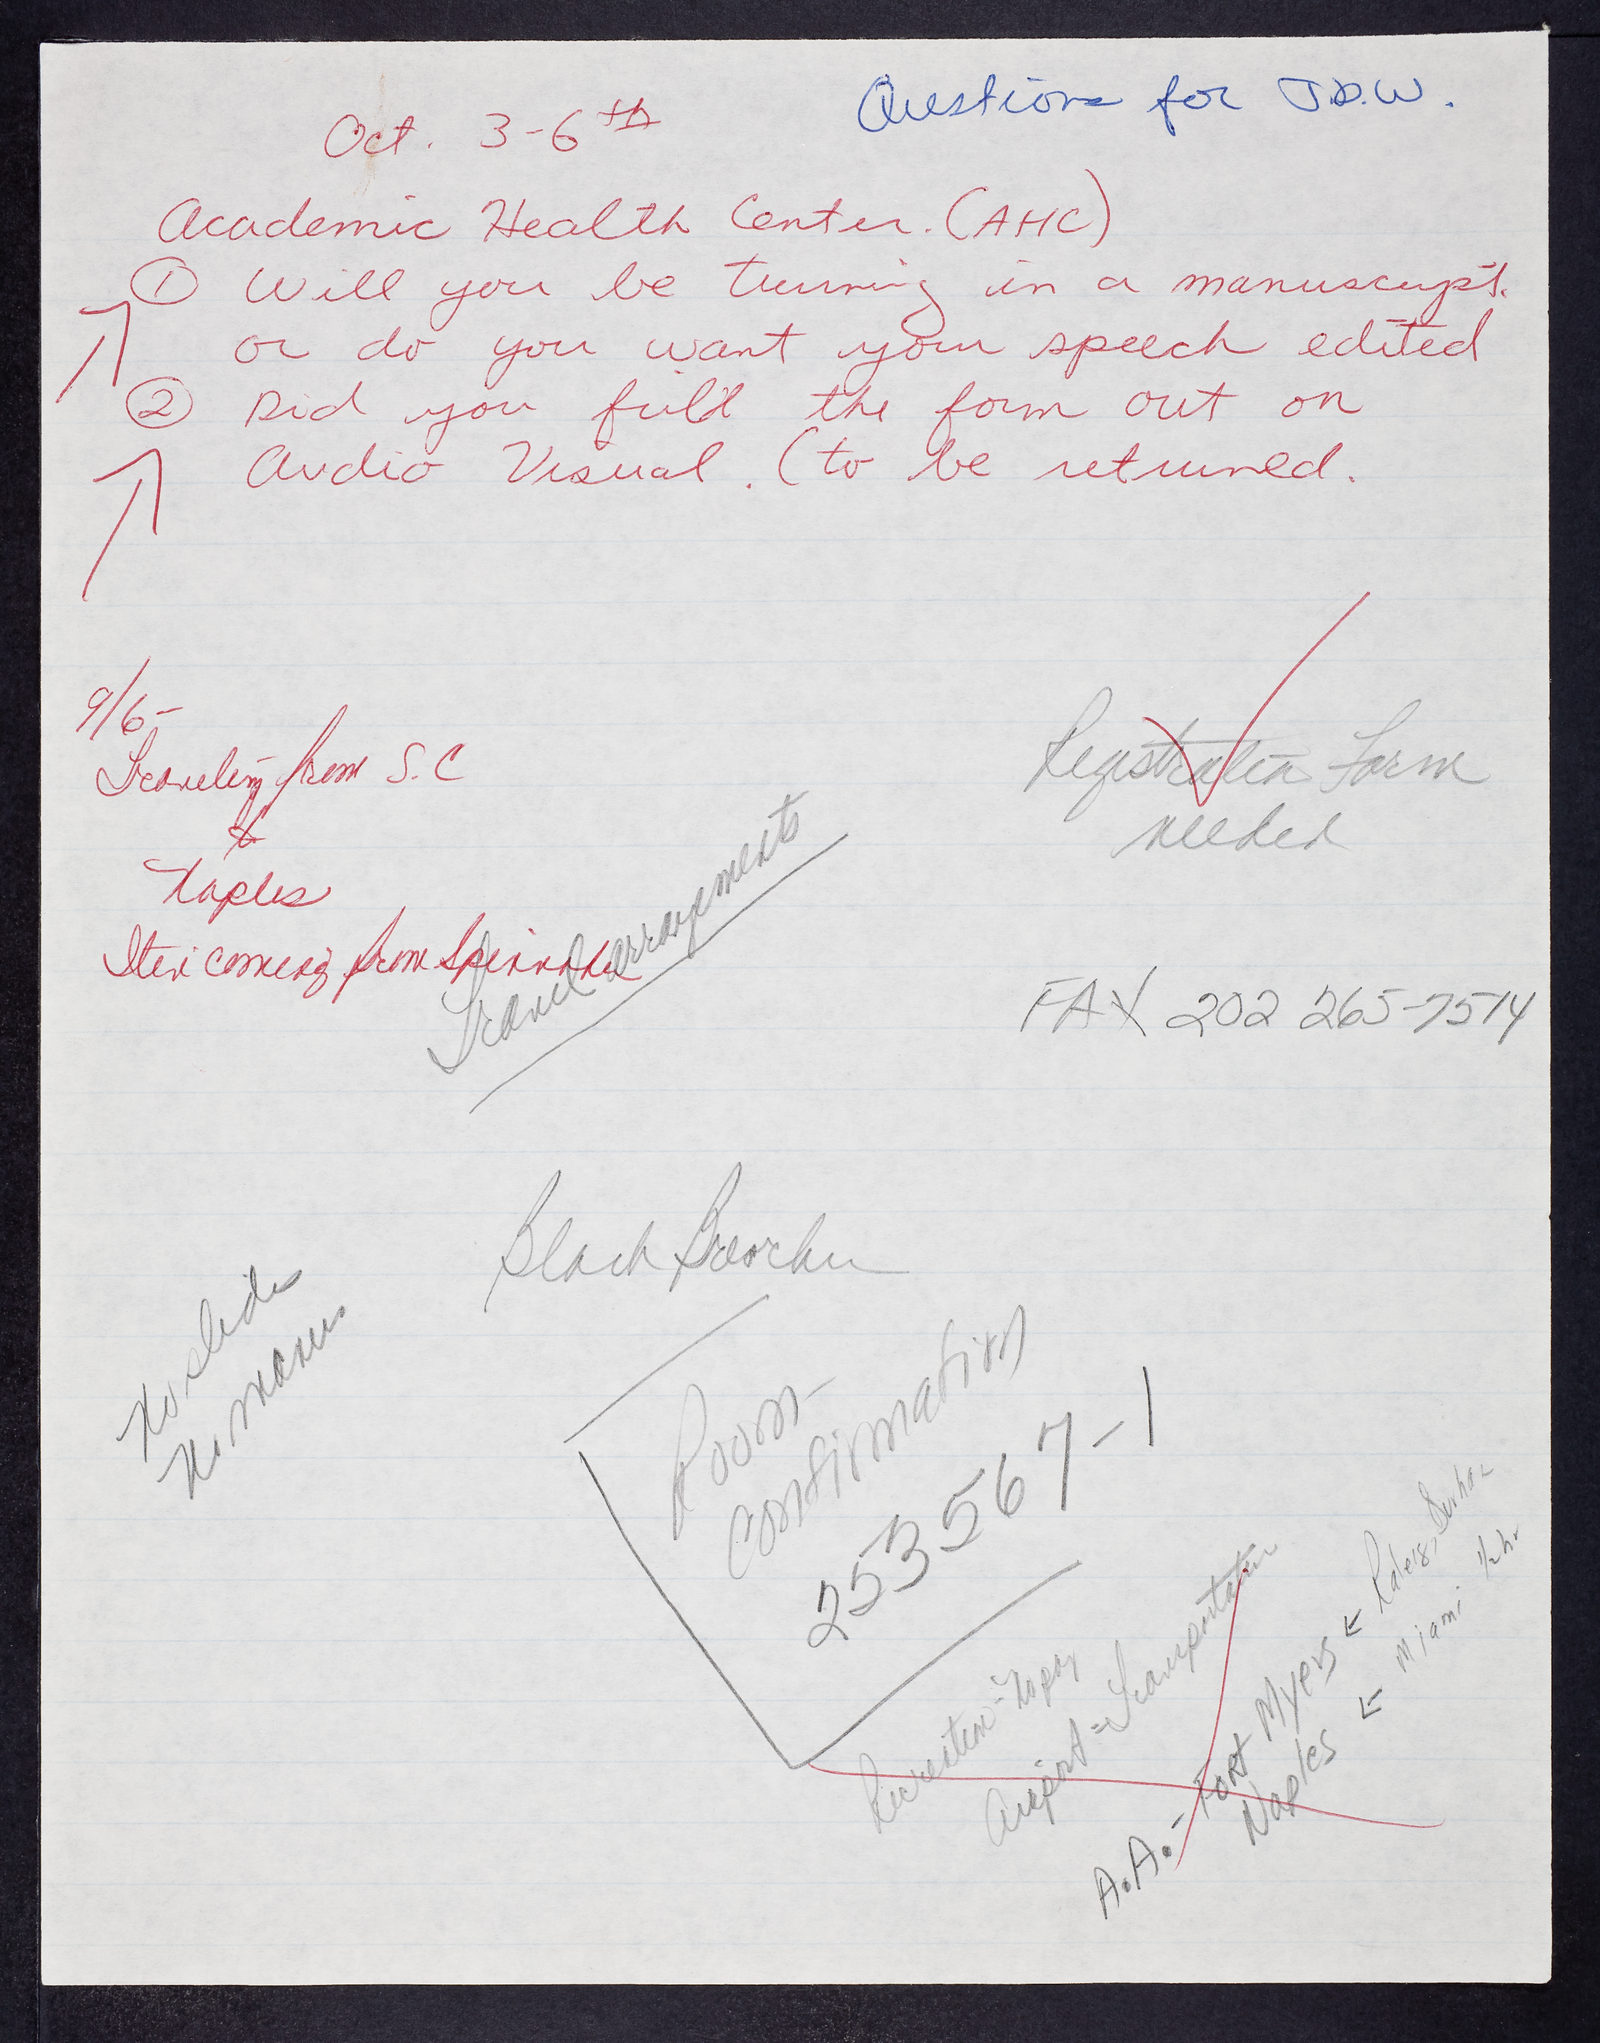 Questions for J.D.W.
Oct. 3-6th
Academic Health Center. (AHC)
① Will you be turning in a manuscript.
or do you want your speech edited
② Did you fill the form out on
Audio Visual. (to be returned.
9/6-
Traveling from S.C
Naples
coming from
Travel arrangements
Registration Form
needed
FAX 202 265-7514
Black
No slides
No manus
Room-
Confirmation
253567-1
Recreation-
Airport = Transportation
A.A. - Fort Myers ←
Naples ← Miami 1/2 hr